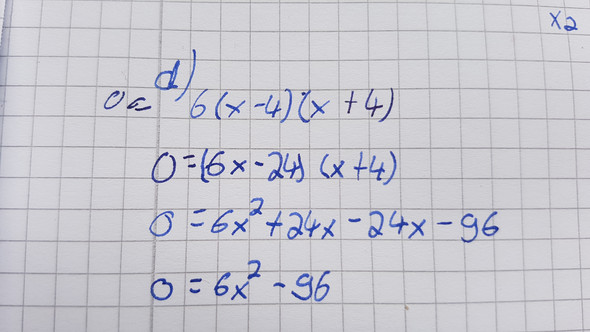 x2
d)
0 = 6(x-4)(x+4)
0=(6x-24)(x+4)
0 = 6x²+24x-24x-96
0 = 6x²-96